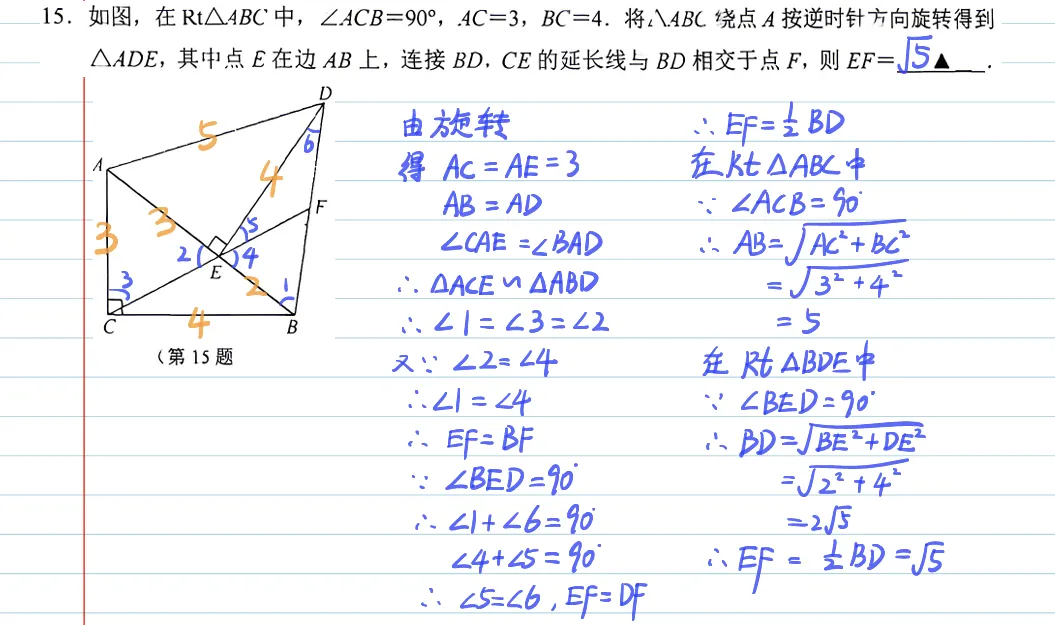 15. 如图，在 Rt△ABC 中，∠ACB=90º，AC=3，BC=4．将△ABC 绕点 A 按逆时针方向旋转得到
△ADE，其中点 E 在边 AB 上，连接 BD，CE 的延长线与 BD 相交于点 F，则 EF=√5▲．
D
6
5
A
4
F
3
3
5
2
4
E
3
2
1
C
4
B
（第 15 题
由旋转
得 AC=AE=3
AB=AD
∠CAE=∠BAD
∴△ACE∽△ABD
∴∠1=∠3=∠2
又∵∠2=∠4
∴∠1=∠4
∴EF=BF
∵∠BED=90°
∴∠1+∠6=90°
∠4+∠5=90°
∴∠5=∠6，EF=DF
∴EF=½BD
在Rt△ABC中
∵∠ACB=90°
∴AB=√(AC²+BC²)
=√(3²+4²)
=5
在Rt△BDE中
∵∠BED=90°
∴BD=√(BE²+DE²)
=√(2²+4²)
=2√5
∴EF=½BD=√5